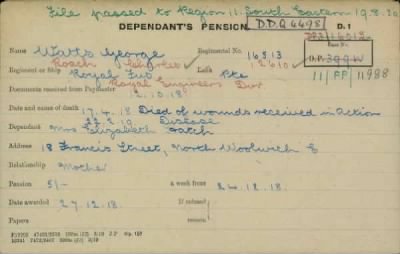 File passed to Region 11. South Eastern 19.8.20
DEPENDANT'S PENSION D.D.Q4498 D.1
Name Watts George Regimental No. 16513
Roach Charles 12610
Case No.
D.P.
Regiment or Ship Royal Fus Rank Pte
Royal Engineers Dvr
11/DP/11988
Documents received from Paymaster 12.10.18
Date and cause of death 17.4.18 Died of wounds received in Action
22.2.19 Disease
Dependant Mrs Elizabeth
Address 18 Francis Street, North Woolwich E
Relationship Mother
Pension 5/- a week from 24.12.18.
Date awarded 27.12.18. If refused
Papers reason